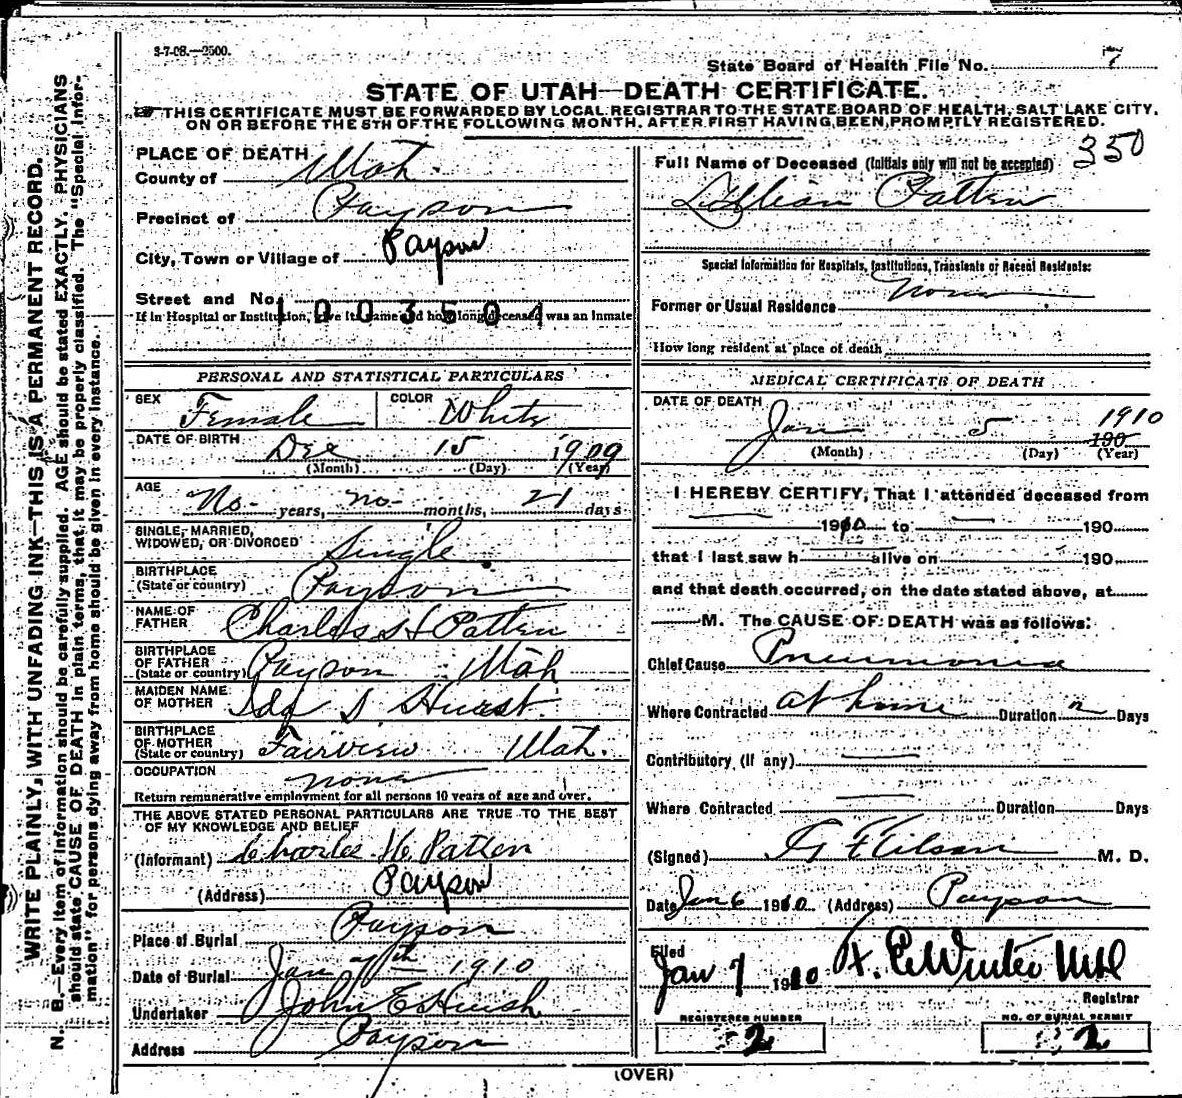 3-7-08.—2500.
State Board of Health File No. 7
STATE OF UTAH—DEATH CERTIFICATE.
THIS CERTIFICATE MUST BE FORWARDED BY LOCAL REGISTRAR TO THE STATE BOARD OF HEALTH, SALT LAKE CITY,
ON OR BEFORE THE 5TH OF THE FOLLOWING MONTH, AFTER FIRST HAVING BEEN PROMPTLY REGISTERED.
350
WRITE PLAINLY, WITH UNFADING INK—THIS IS A PERMANENT RECORD.
N. B.—Every item of information should be carefully supplied. AGE should be stated EXACTLY. PHYSICIANS
should state CAUSE OF DEATH in plain terms, that it may be properly classified. The "Special Infor-
mation" for persons dying away from home should be given in every instance.
PLACE OF DEATH
County of Utah.
Precinct of Payson
City, Town or Village of Payson
Street and No.
1003501
If in Hospital or Institution, give its name and how long deceased was an inmate
PERSONAL AND STATISTICAL PARTICULARS
SEX Female COLOR White
DATE OF BIRTH Dec 15 1909
(Month) (Day) (Year)
AGE No- years, no- months, 21 days
SINGLE, MARRIED,
WIDOWED, OR DIVORCED Single
BIRTHPLACE
(State or country) Payson
NAME OF
FATHER Charles H Patten
BIRTHPLACE
OF FATHER
(State or country) Payson Utah
MAIDEN NAME
OF MOTHER Ida S. Hurst.
BIRTHPLACE
OF MOTHER
(State or country) Fairview Utah.
OCCUPATION none
Return remunerative employment for all persons 10 years of age and over.
THE ABOVE STATED PERSONAL PARTICULARS ARE TRUE TO THE BEST
OF MY KNOWLEDGE AND BELIEF
(Informant) Charles H. Patten
(Address) Payson
Place of Burial Payson
Date of Burial Jan 7th 1910
Undertaker John E Huish
Address Payson
Full Name of Deceased (Initials only will not be accepted)
Lillian Patten
Special Information for Hospitals, Institutions, Transients or Recent Residents:
Former or Usual Residence None
How long resident at place of death
MEDICAL CERTIFICATE OF DEATH
DATE OF DEATH
Jan 5 1910 190
(Month) (Day) (Year)
I HEREBY CERTIFY, That I attended deceased from
1910 to 190
that I last saw h alive on 190
and that death occurred, on the date stated above, at
M. The CAUSE OF DEATH was as follows:
Chief Cause Pneumonia
Where Contracted at home Duration Days
Contributory (if any)
Where Contracted Duration Days
(Signed) M. D.
Date Jan 6 1910 (Address) Payson
Filed
Jan 7 1910
Registrar
REGISTERED NUMBER
2
NO. OF BURIAL PERMIT
2
(OVER)